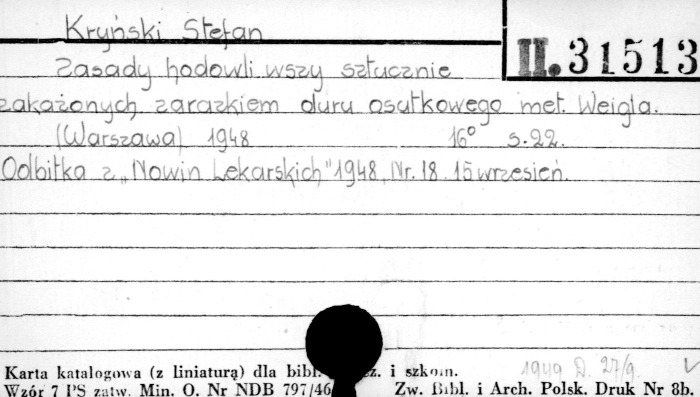 Kryński Stefan
II. 31513
Zasady hodowli wszy sztucznie
zakażonych zarazkiem duru osutkowego met. Weigla.
(Warszawa) 1948 16° s. 22.
Odbitka z „Nowin Lekarskich" 1948, Nr. 18. 15 wrzesień.
1949 D. 27/9.
Karta katalogowa (z liniaturą) dla bibl. i szkoln.
Wzór 7 PS zatw. Min. O. Nr NDB 797/46 Zw. Bibl. i Arch. Polsk. Druk Nr 8b.